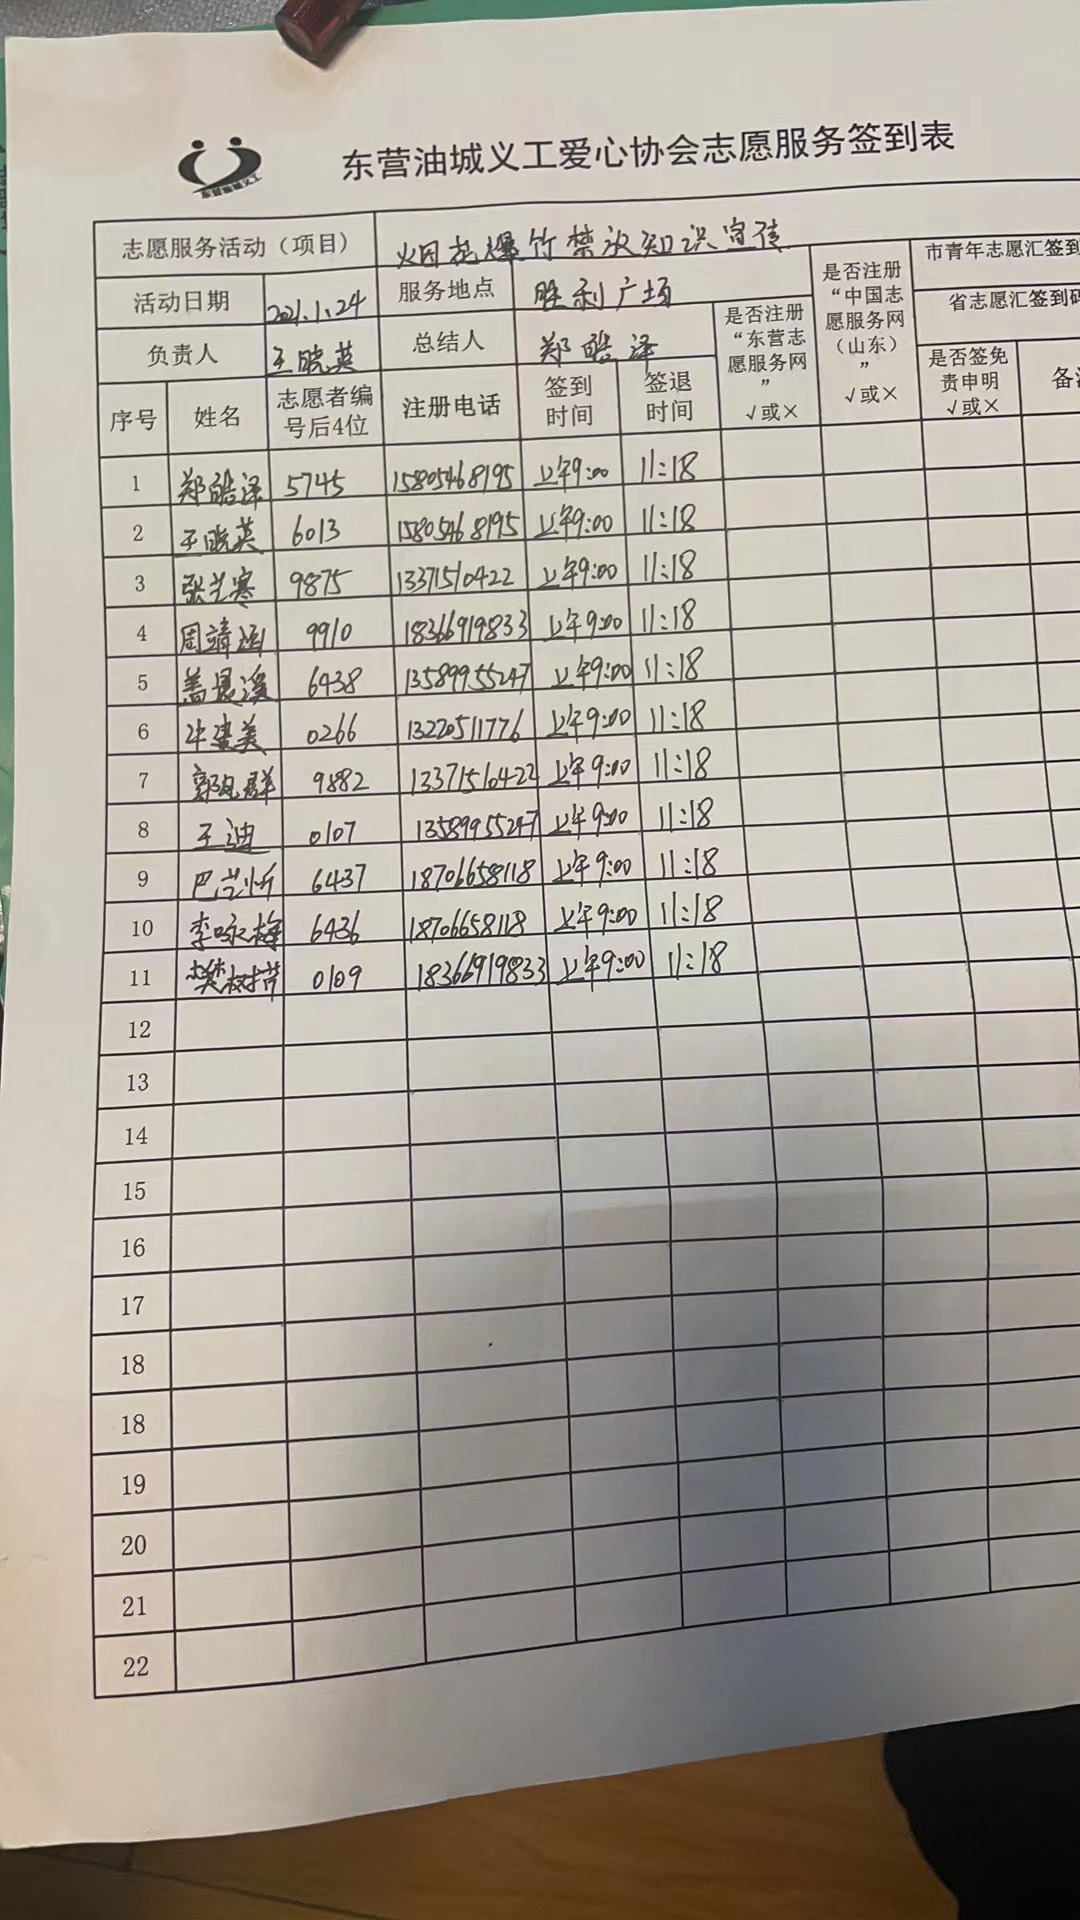 东营油城义工
东营油城义工爱心协会志愿服务签到表
志愿服务活动（项目） 烟花爆竹禁放知识宣传
活动日期 2021.1.24 服务地点 胜利广场
负责人 王晓英 总结人 郑皓泽
是否注册“东营志愿服务网” √或×
是否注册“中国志愿服务网（山东）” √或×
市青年志愿汇签到
省志愿汇签到码
是否签免责申明 √或×
序号 姓名 志愿者编号后4位 注册电话 签到时间 签退时间
1 郑皓泽 5745 15805468195 上午9:00 11:18
2 王晓英 6013 15805468195 上午9:00 11:18
3 张艺寒 9875 13371510422 上午9:00 11:18
4 周靖涵 9910 18366919833 上午9:00 11:18
5 盖晨溪 6438 13589955247 上午9:00 11:18
6 美 0266 13220511776 上午9:00 11:18
7 郭 群 9882 13371510422 上午9:00 11:18
8 王迪 0107 13589955247 上午9:00 11:18
9 巴艺忻 6437 18706658118 上午9:00 11:18
10 李咏梅 6436 18706658118 上午9:00 11:18
11 樊树 0109 18366919833 上午9:00 11:18
12
13
14
15
16
17
18
18
19
20
21
22